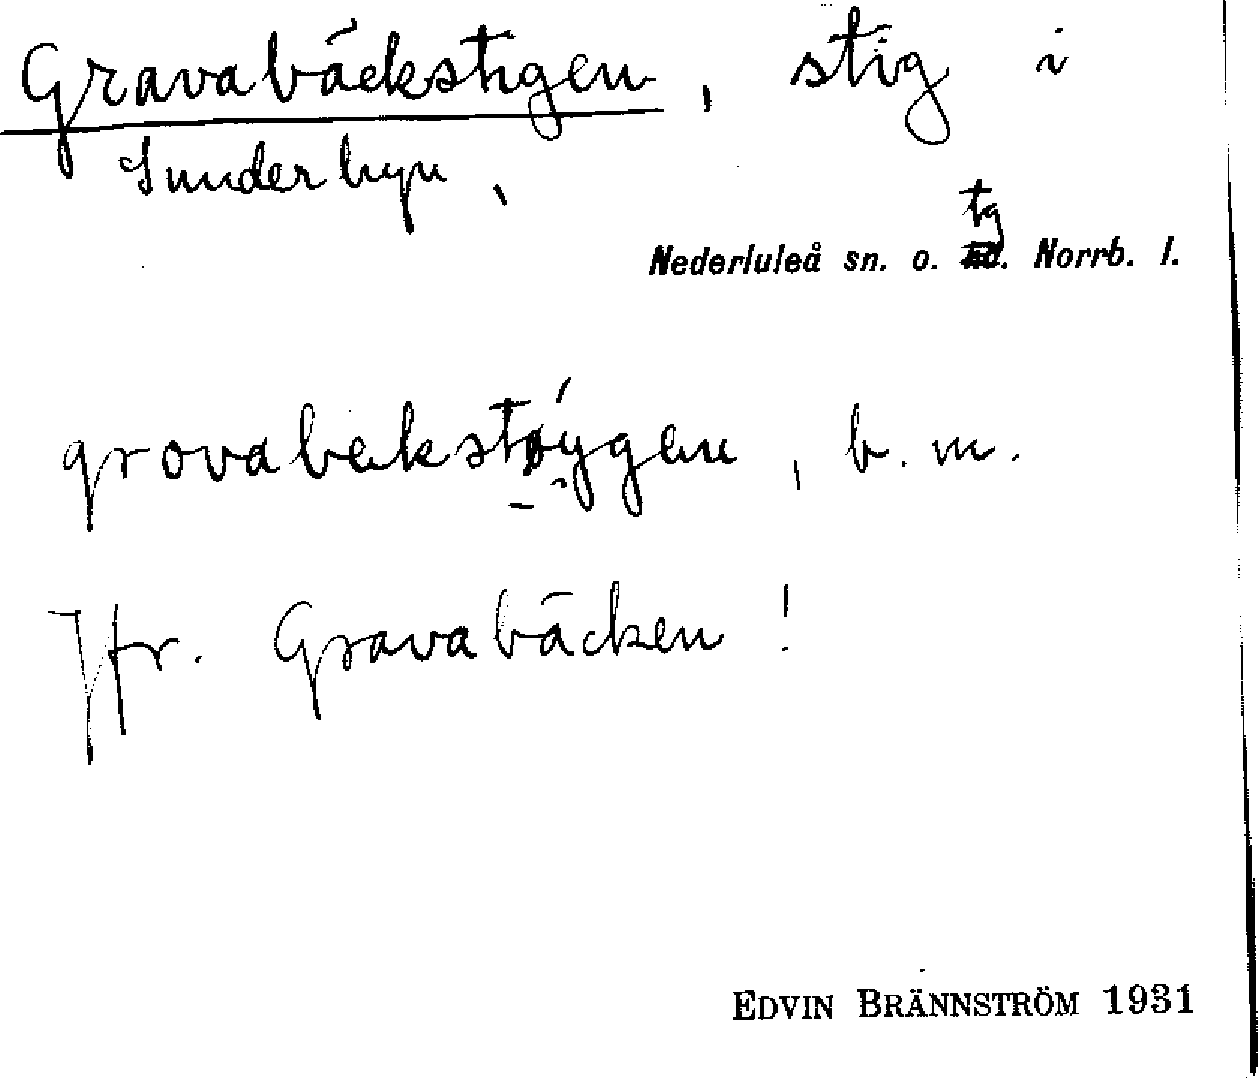 Gravabäckstigen, stig i
Sunderbyn,
Nederluleå sn. o. tg. Norrb. l.
grovabekstøygen, b. m.
Jfr. Gravabäcken!
EDVIN BRÄNNSTRÖM 1931